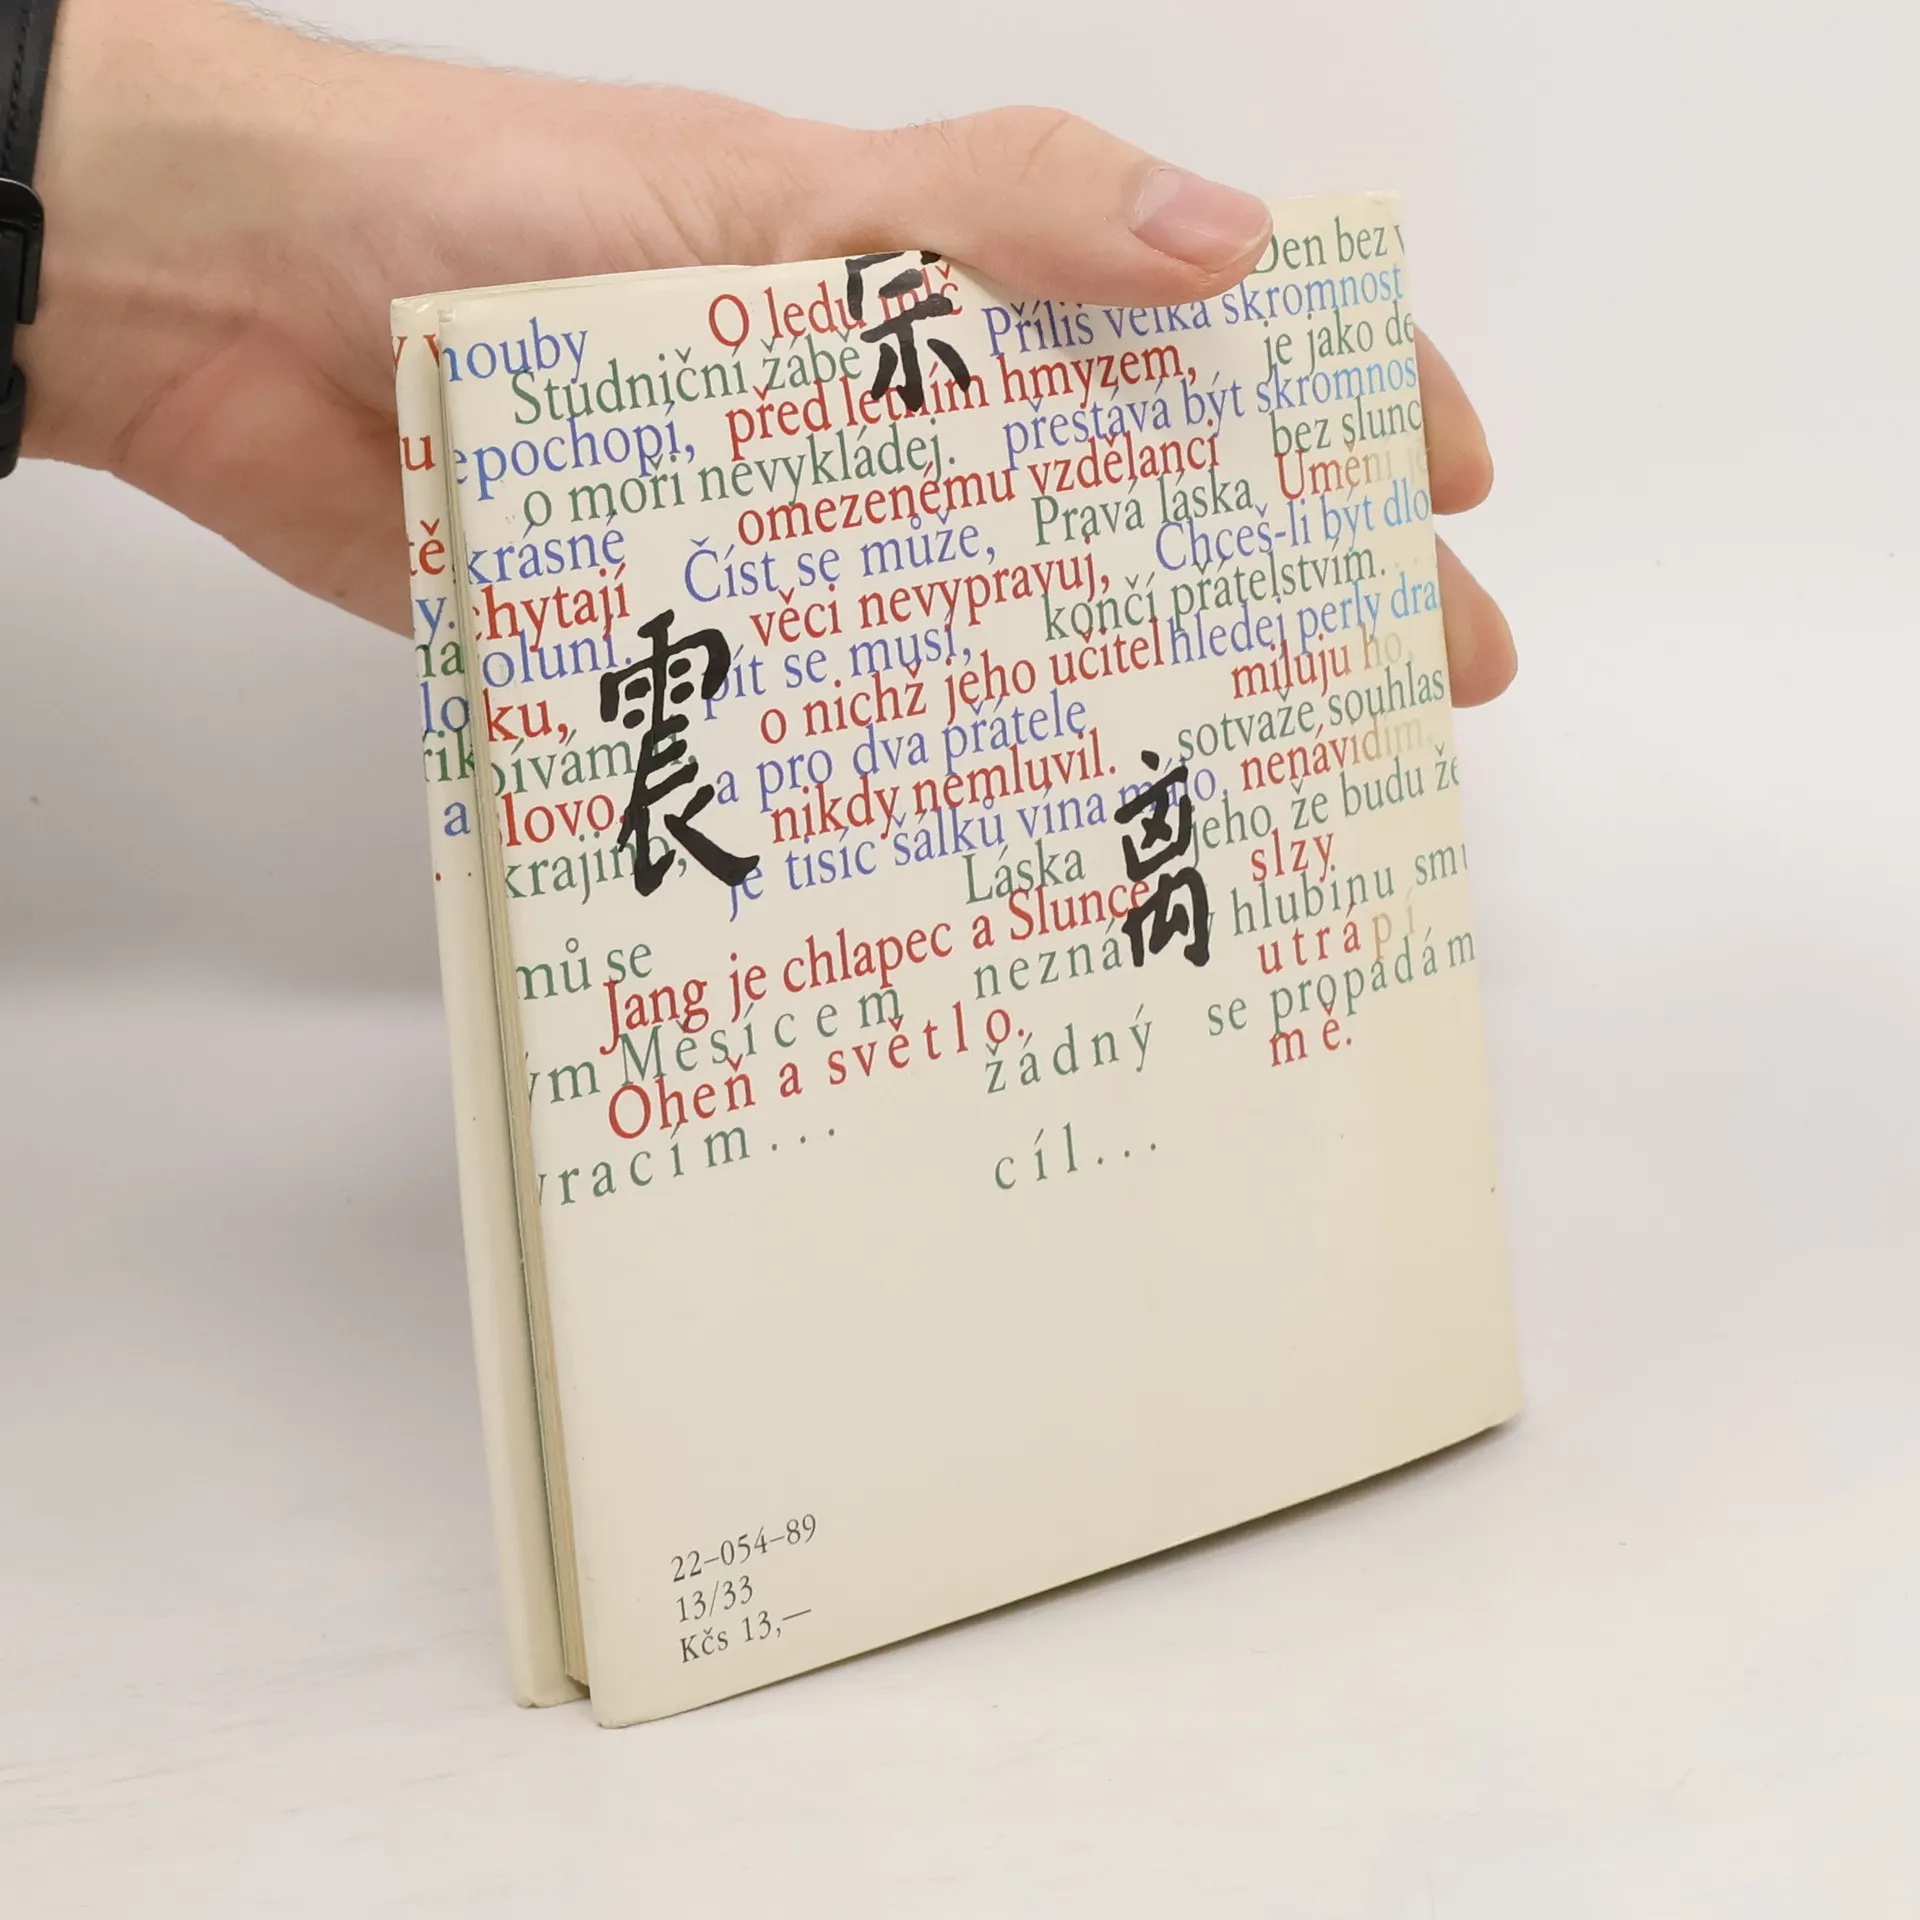 O ledu mlč
Den bez
houby
Příliš velká skromnost
Studniční žábě
je jako
před letním hmyzem,
přestává být skromnos
epochopí,
bez slunc
o moři nevykládej.
omezenému vzdělanci
Umění
krásné
Pravá láska
Číst se může,
Chceš-li být dlo
chytají
věci nevypravuj,
končí přátelstvím.
oluní.
pít se musí,
hledej perly dra
ku,
o nichž jeho učitel
miluju ho,
zpívám
a pro dva přátele
sotvaže souhlas
slovo.
nikdy nemluvil.
nenávidím,
krajino,
je tisíc šálků vína málo.
jeho, že budu že
Láska
slzy
mů se
Jang je chlapec a Slunce
nezná
v hlubinu smu
ým Měsícem
utrápí
Oheň a světlo.
žádný
se propadám
mě.
vracím...
cíl...
宗
震
离
u
tě
y.
na
lo
řík
a
22–054–89
13/33
Kčs 13,—